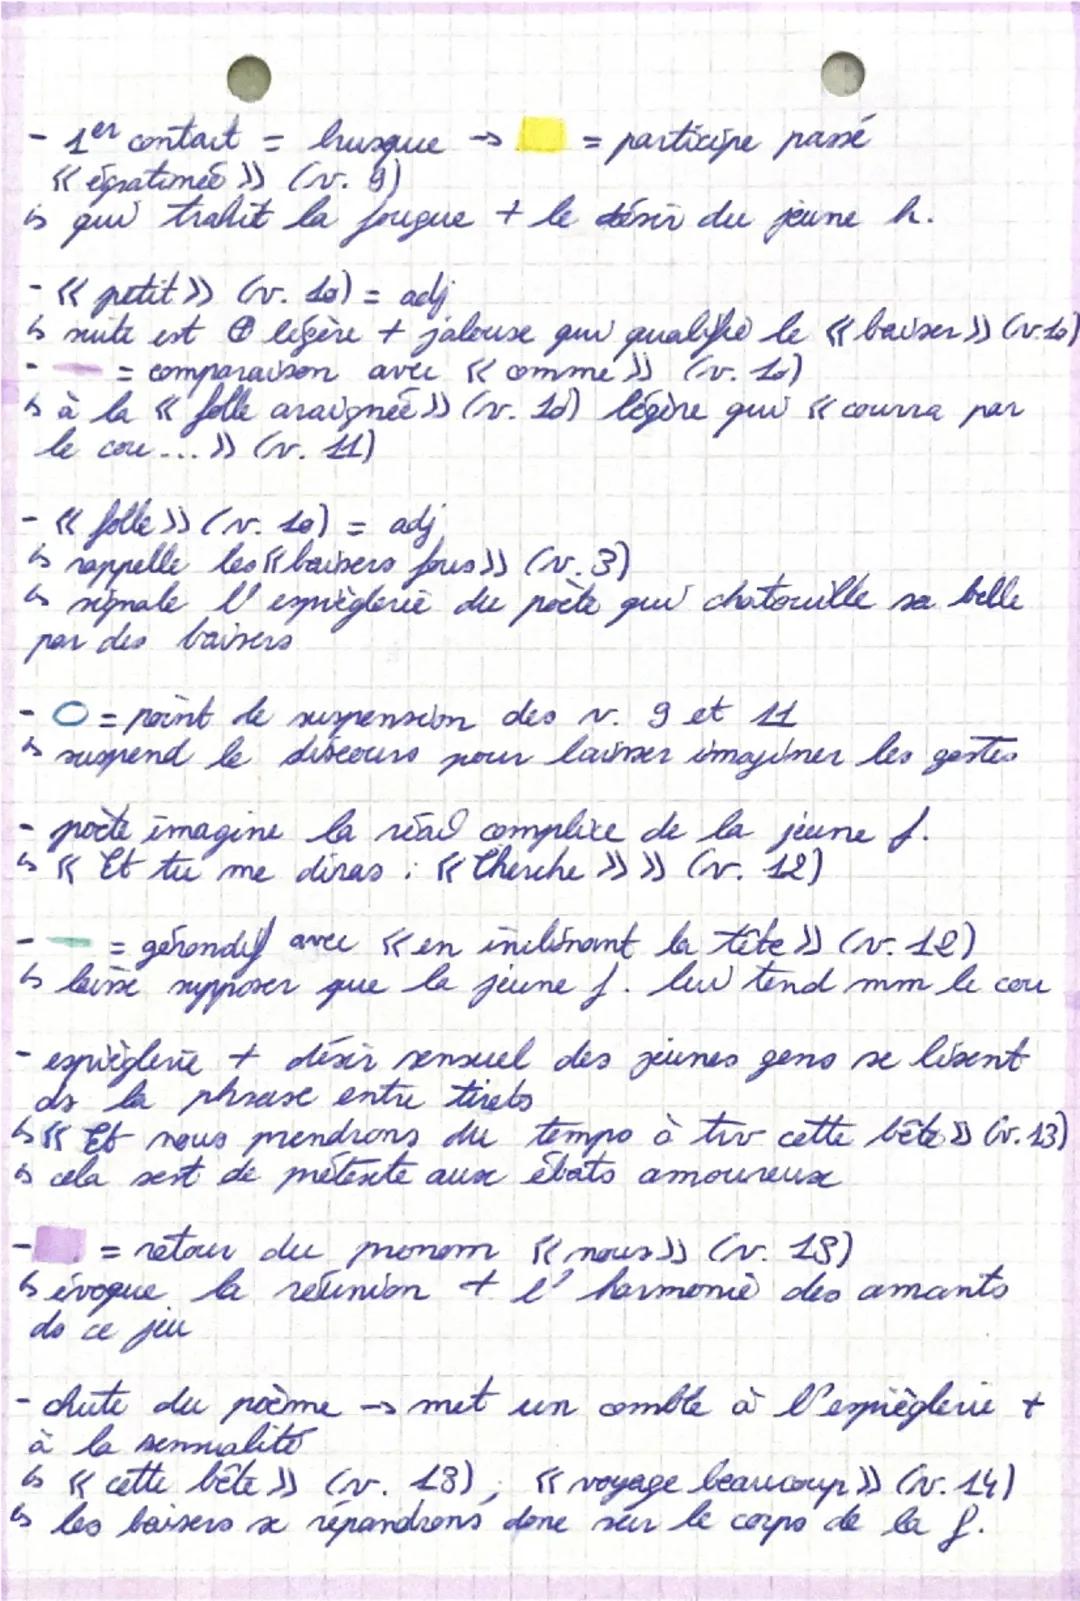 - 1er contact = brusque → = participe passé
« égratignée » (v. 9)
↳ qui trahit la fougue + le désir du jeune h.
- « petit » (v. 10) = adj
↳ suite est ⊕ légère + jalouse qui qualifie le « baiser » (v.10)
- = comparaison avec « comme » (v. 10)
↳ à la « folle araignée » (v. 10) légère qui « courra par
le cou ... » (v. 11)
- « folle » (v. 10) = adj
↳ rappelle les « baisers fous » (v. 3)
↳ signale l'espièglerie du poète qui chatouille sa belle
par des baisers
- = point de suspension des v. 9 et 11
↳ suspend le discours pour laisser imaginer les gestes
- poète imagine la réac complice de la jeune f.
↳ « Et tu me diras : « Cherche » » (v. 12)
- = gérondif avec « en inclinant la tête » (v. 12)
↳ laisse supposer que la jeune f. lui tend mm le cou
- espièglerie + désir sensuel des jeunes gens se lisent
ds la phrase entre tirets
↳ « Et nous prendrons du temps à trv cette bête » (v. 13)
↳ cela sert de prétexte aux ébats amoureux
- = retour du pronom « nous » (v. 13)
↳ évoque la réunion + l'harmonie des amants
ds ce jeu
- chute du poème → met un comble à l'espièglerie +
à la sensualité
↳ « cette bête » (v. 13) ; « voyage beaucoup » (v. 14)
↳ les baisers se répandrons donc sur le corps de la f.